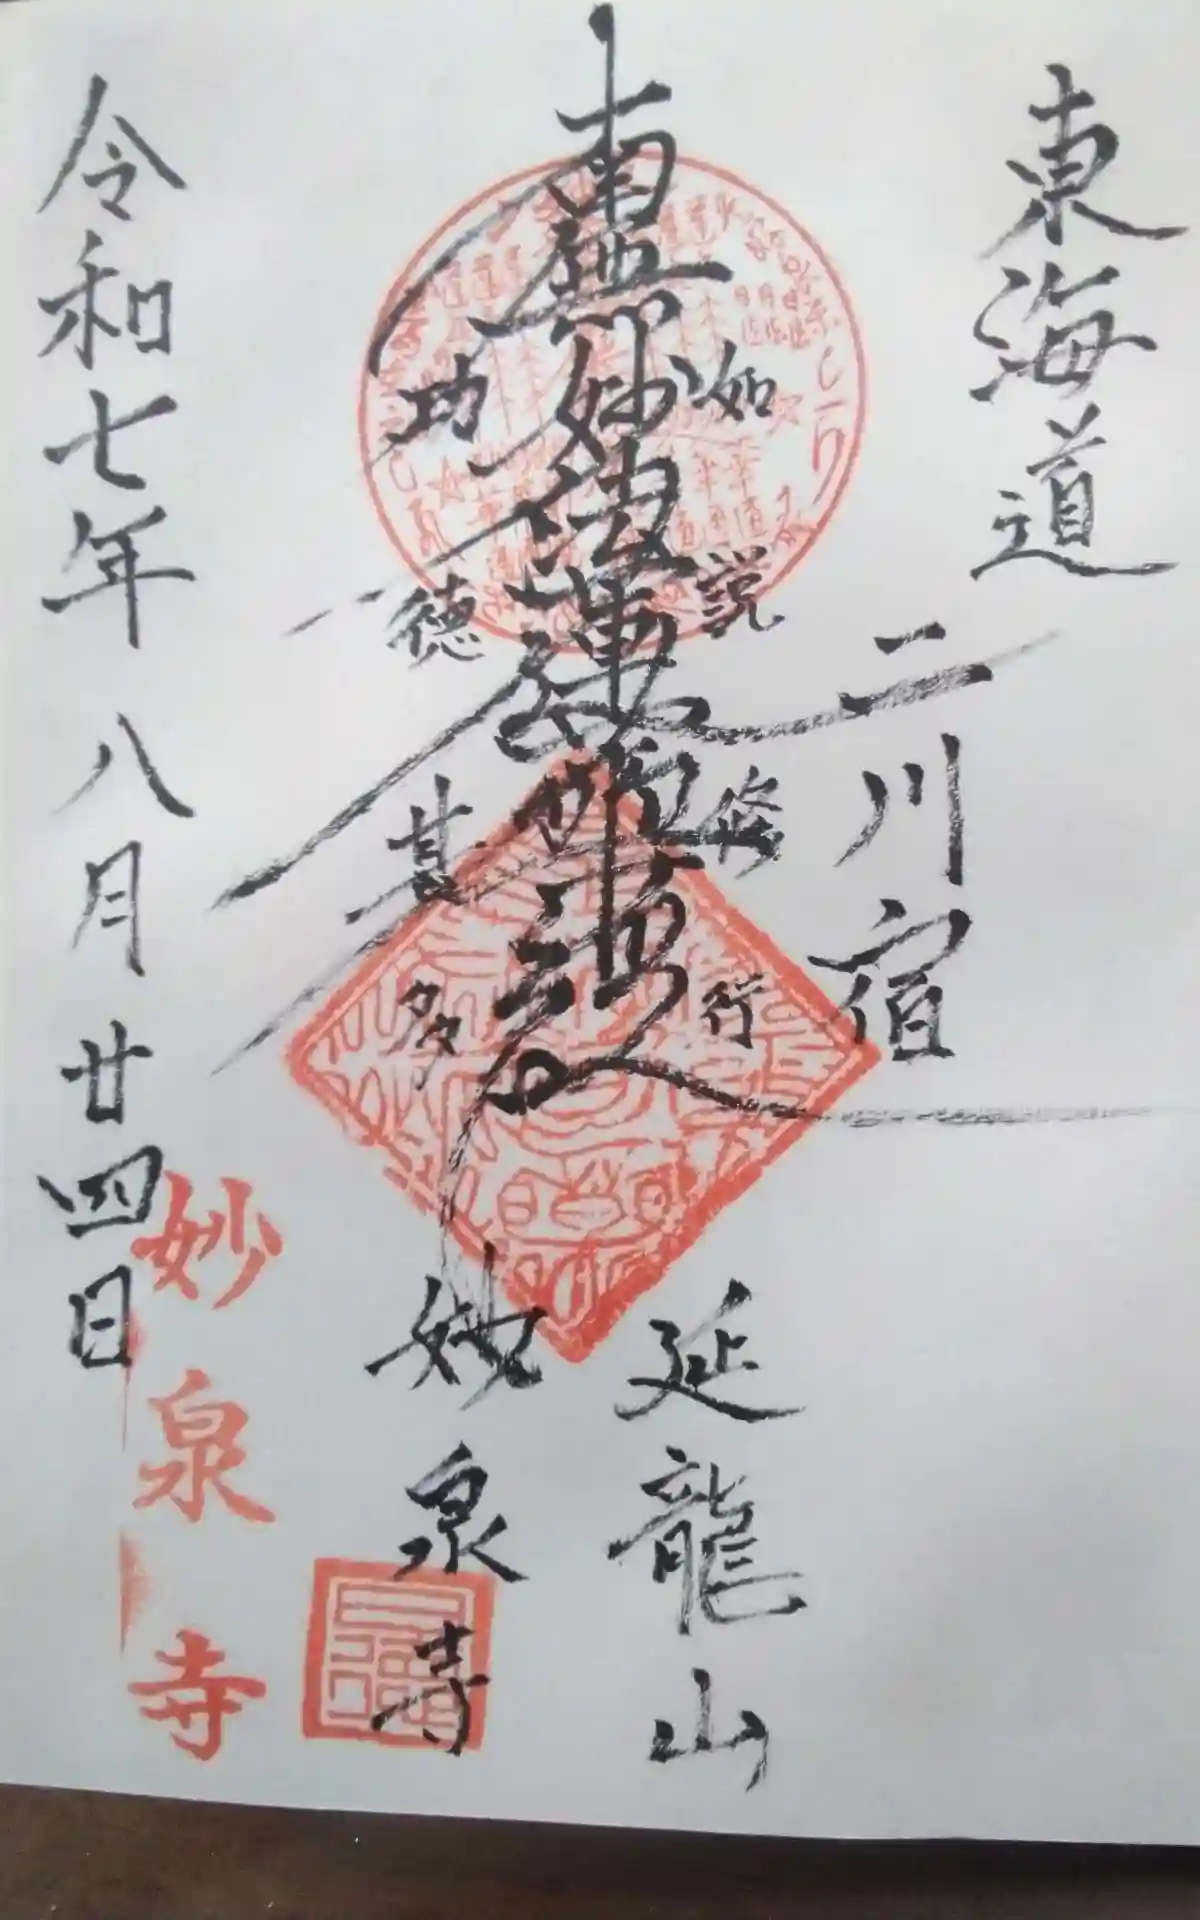 東海道
二川宿
如説修行
南無妙法蓮華経
功徳甚多
延龍山
妙泉寺
令和七年八月廿四日
妙泉寺